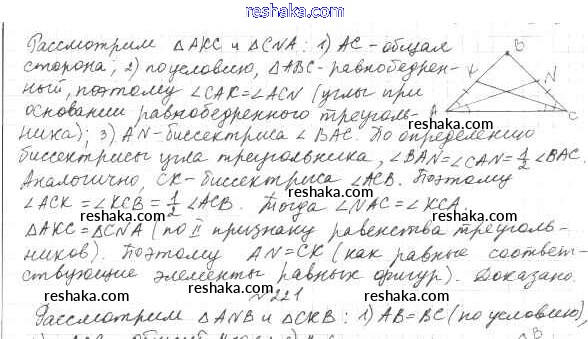 reshaka.ru
Рассмотрим △AKC и △CNA: 1) AC - общая
сторона; 2) по условию, △ABC - равнобедрен-
ный, поэтому ∠CAK = ∠ACN (углы при
основании равнобедренного треуголь-
ника); 3) AN - биссектриса ∠BAC. По определению
биссектрисы угла треугольника, ∠BAN = ∠CAN = 1/2 ∠BAC.
Аналогично, CK - биссектриса ∠ACB. Поэтому
∠ACK = ∠KCB = 1/2 ∠ACB. Тогда ∠NAC = ∠KCA.
△AKC = △CNA (по II признаку равенства треуголь-
ников). Поэтому AN = CK (как равные соответ-
ствующие элементы равных фигур). Доказано.
№221
Рассмотрим △ANB и △CKB: 1) AB = BC (по условию),
B
K
N
A
C
reshaka.ru
reshaka.ru
reshaka.ru
reshaka.ru
reshaka.ru
reshaka.ru
reshaka.ru
reshaka.ru
reshaka.ru
B